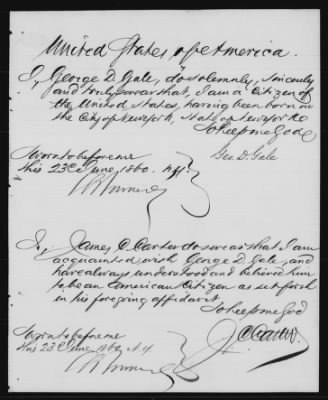 United States of America.
I, George D. Gale, do solemnly, sincerely
and truly swear that, I am a Citizen of
the United States, having been born in
the City of New York, State of New York
So help me God
Geo. D. Gale
Sworn to before me
this 23d June, 1860.
I, James C. Carter do swear that I am
acquainted with George D. Gale, and
have always understood and believed him
to be an American Citizen as set forth
in his foregoing affidavit
So help me God
J. C. Carter
Sworn to before me
this 23d June 1860 N.Y.